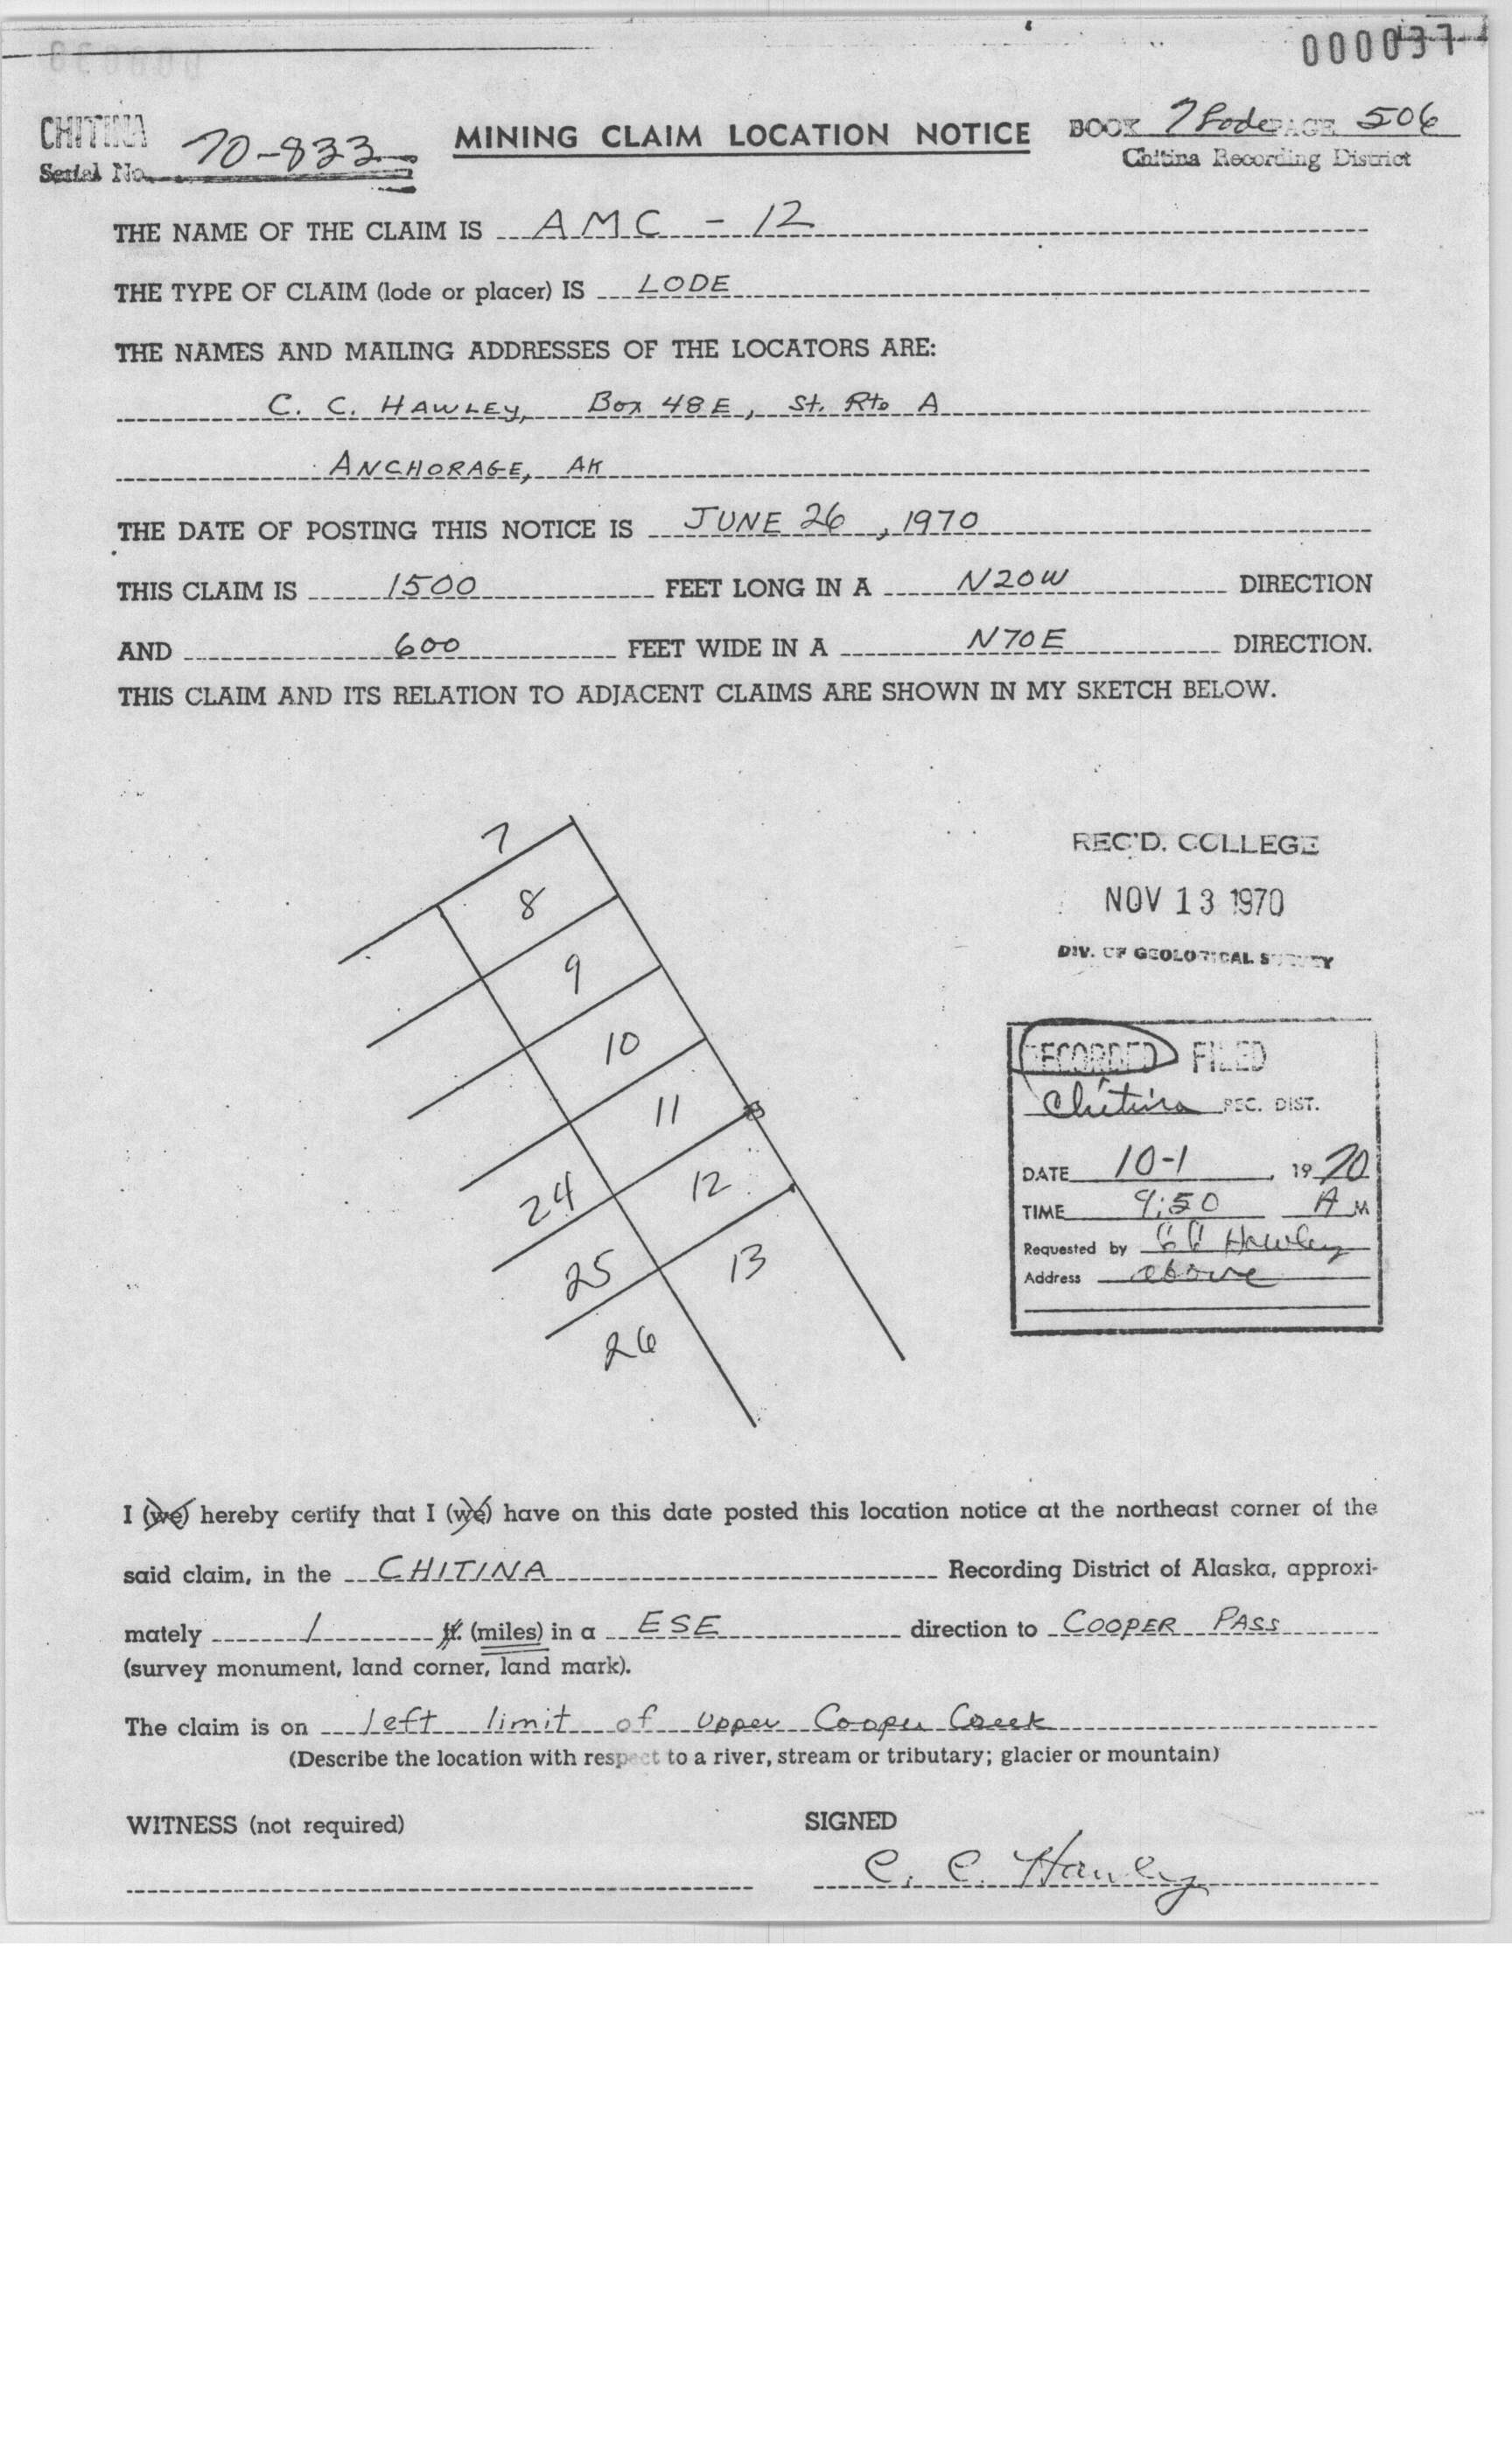 000037
CHITINA
Serial No. 70-833
MINING CLAIM LOCATION NOTICE
BOOK 7 Lode PAGE 506
Chitina Recording District
THE NAME OF THE CLAIM IS AMC - 12
THE TYPE OF CLAIM (lode or placer) IS LODE
THE NAMES AND MAILING ADDRESSES OF THE LOCATORS ARE:
C. C. HAWLEY, Box 48E, St. Rte A
ANCHORAGE, AK
THE DATE OF POSTING THIS NOTICE IS JUNE 26, 1970
THIS CLAIM IS 1500 FEET LONG IN A N20W DIRECTION
AND 600 FEET WIDE IN A N70E DIRECTION.
THIS CLAIM AND ITS RELATION TO ADJACENT CLAIMS ARE SHOWN IN MY SKETCH BELOW.
7
8
9
10
11
24
12
25
13
26
REC'D. COLLEGE
NOV 13 1970
DIV. OF GEOLOGICAL SURVEY
RECORDED FILED
Chitina REC. DIST.
DATE 10-1, 1970
TIME 9:50 A M
Requested by CC Hawley
Address above
I (we) hereby certify that I (we) have on this date posted this location notice at the northeast corner of the
said claim, in the CHITINA Recording District of Alaska, approxi-
mately 1 ft. (miles) in a ESE direction to COOPER PASS
(survey monument, land corner, land mark).
The claim is on left limit of Upper Cooper Creek
(Describe the location with respect to a river, stream or tributary; glacier or mountain)
WITNESS (not required)
SIGNED
C. C. Hawley